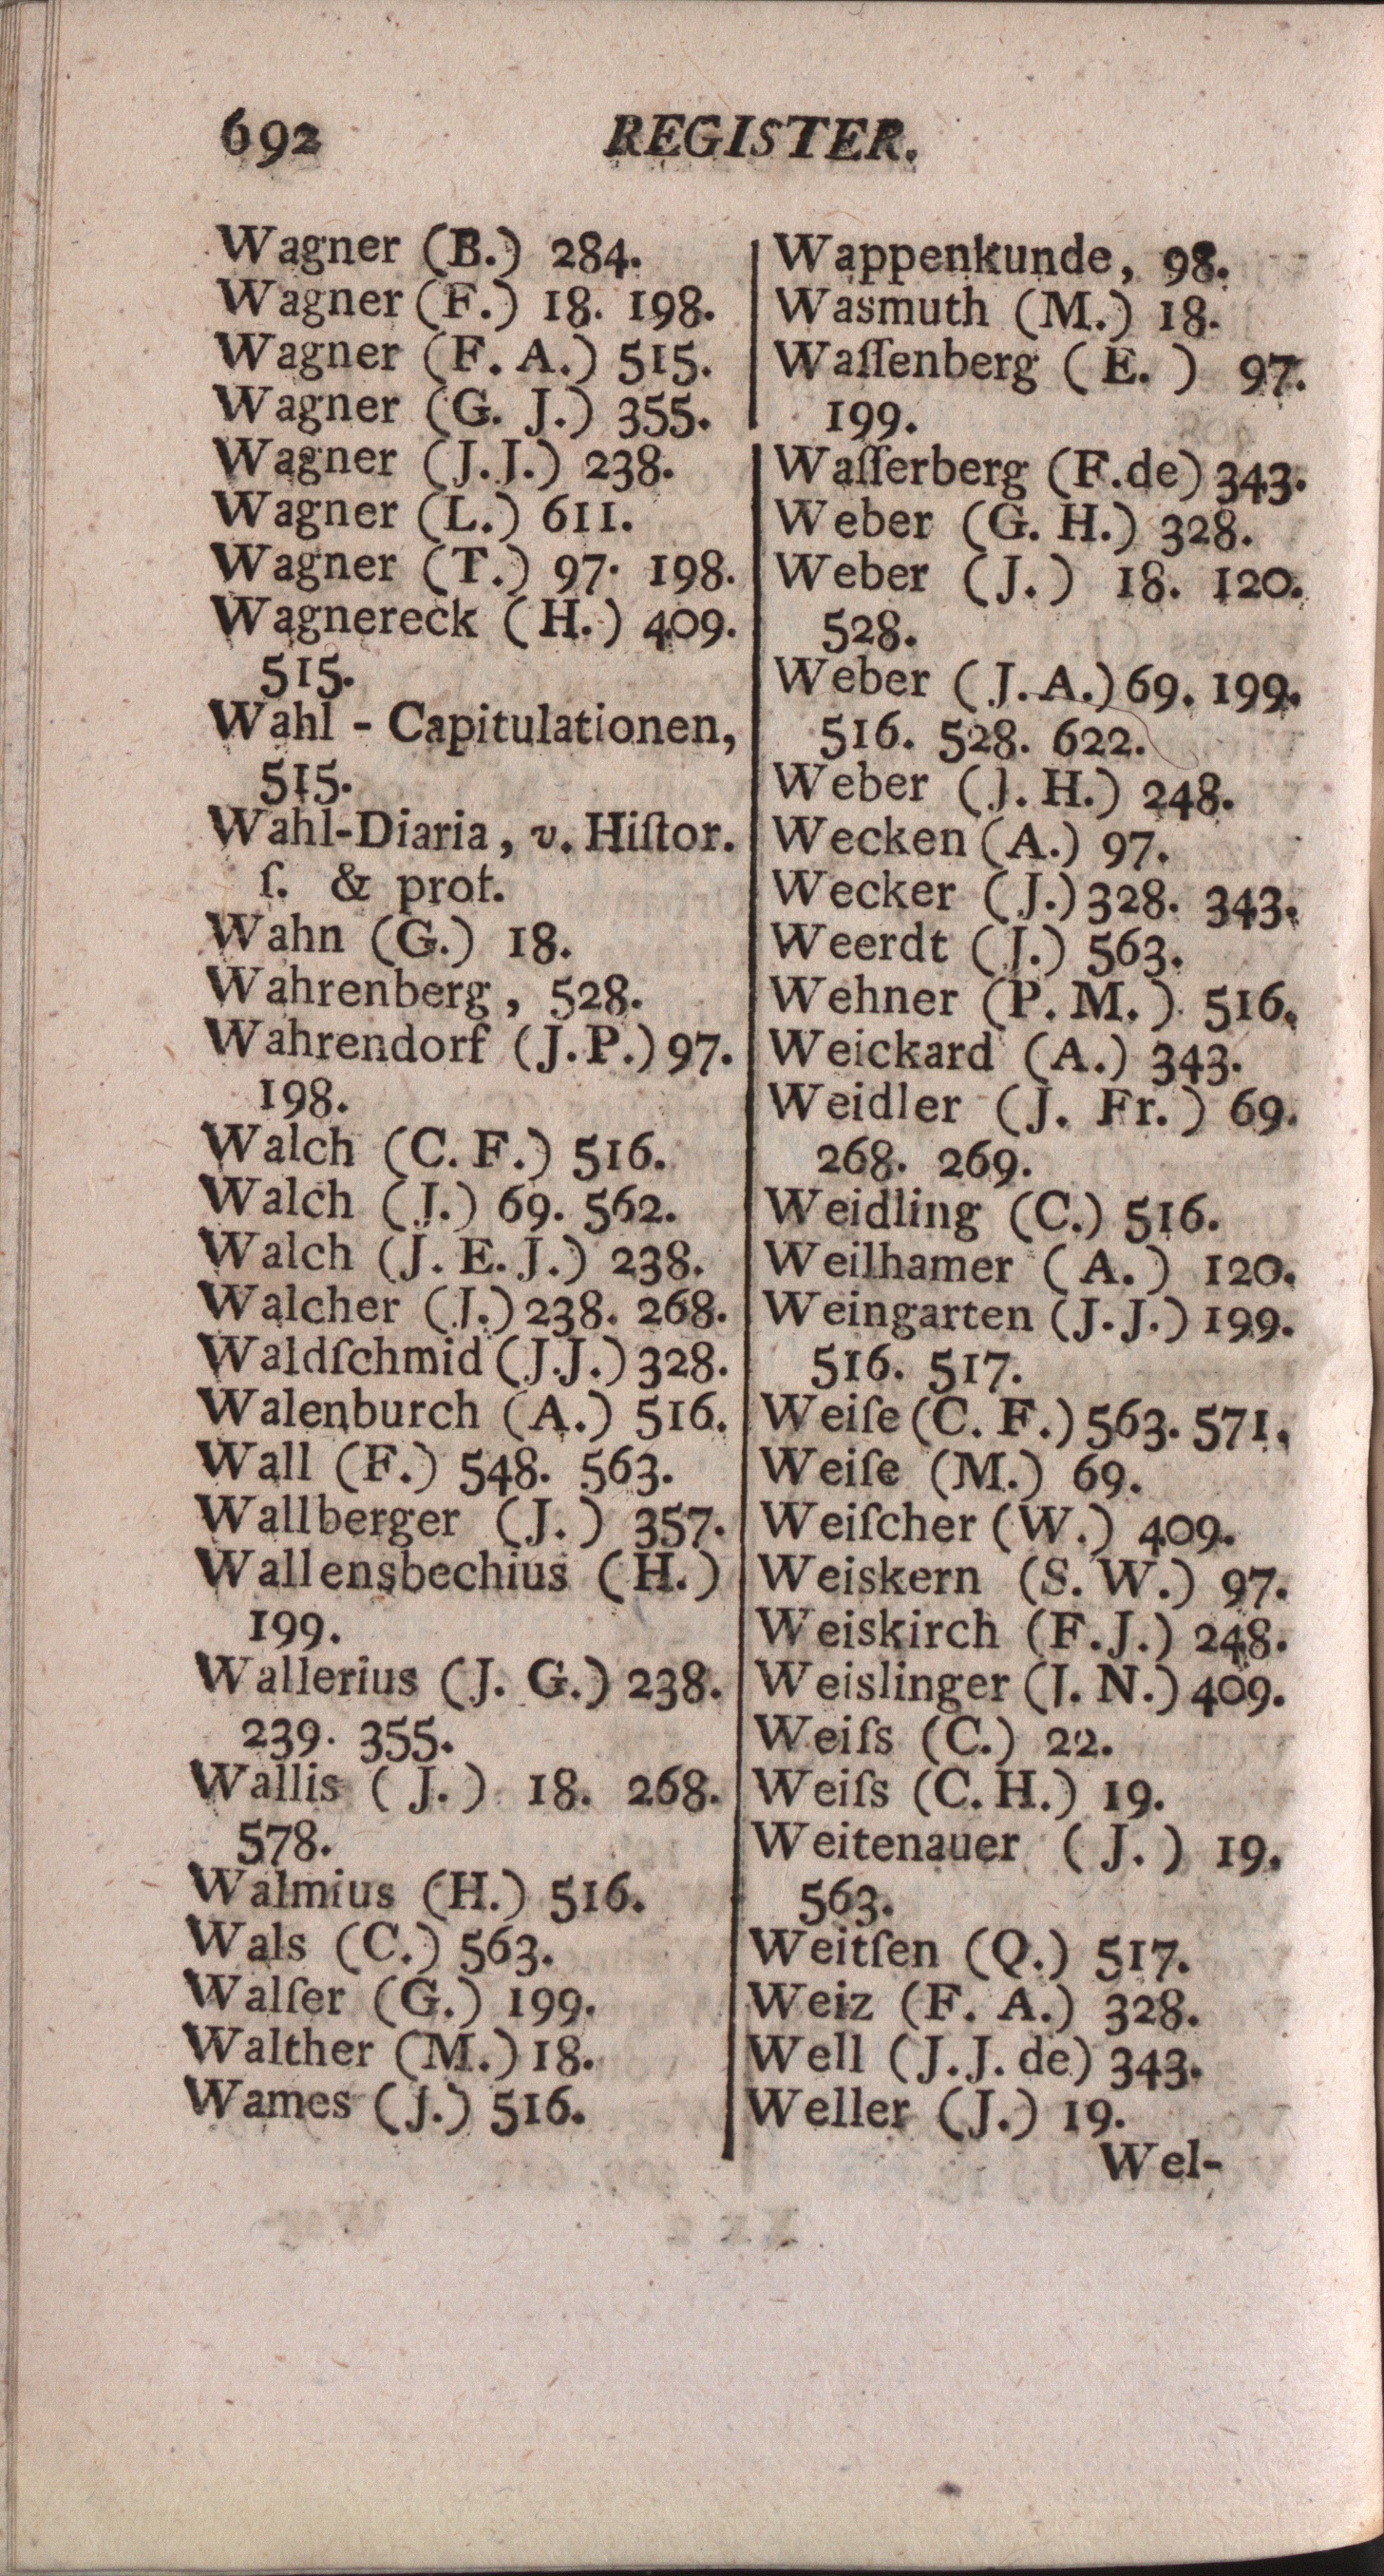 692 REGISTER.
Wagner (B.) 284.
Wagner (F.) 18. 198.
Wagner (F. A.) 515.
Wagner (G. J.) 355.
Wagner (J.J.) 238.
Wagner (L.) 611.
Wagner (T.) 97. 198.
Wagnereck (H.) 409.
515.
Wahl - Capitulationen,
515.
Wahl-Diaria, v. Hiſtor.
ſ. & prot.
Wahn (G.) 18.
Wahrenberg, 528.
Wahrendorf (J.P.) 97.
198.
Walch (C. F.) 516.
Walch (J.) 69. 562.
Walch (J. E. J.) 238.
Walcher (J.) 238. 268.
Waldſchmid (J.J.) 328.
Walenburch (A.) 516.
Wall (F.) 548. 563.
Wallberger (J.) 357.
Wallensbechius (H.)
199.
Wallerius (J. G.) 238.
239. 355.
Wallis (J.) 18. 268.
578.
Walmius (H.) 516.
Wals (C.) 563.
Walſer (G.) 199.
Walther (M.) 18.
Wames (J.) 516.
Wappenkunde, 98.
Wasmuth (M.) 18.
Waſſenberg (E.) 97.
199.
Waſſerberg (F.de) 343.
Weber (G. H.) 328.
Weber (J.) 18. 120.
528.
Weber (J. A.) 69. 199.
516. 528. 622.
Weber (J. H.) 248.
Wecken (A.) 97.
Wecker (J.) 328. 343.
Weerdt (J.) 563.
Wehner (P. M.) 516.
Weickard (A.) 343.
Weidler (J. Fr.) 69.
268. 269.
Weidling (C.) 516.
Weilhamer (A.) 120.
Weingarten (J. J.) 199.
516. 517.
Weiſe (C. F.) 563. 571.
Weiſe (M.) 69.
Weiſcher (W.) 409.
Weiskern (S. W.) 97.
Weiskirch (F. J.) 248.
Weislinger (J. N.) 409.
Weiſs (C.) 22.
Weiſs (C. H.) 19.
Weitenauer (J.) 19.
563.
Weitſen (Q.) 517.
Weiz (F. A.) 328.
Well (J. J. de) 343.
Weller (J.) 19.
Wel-